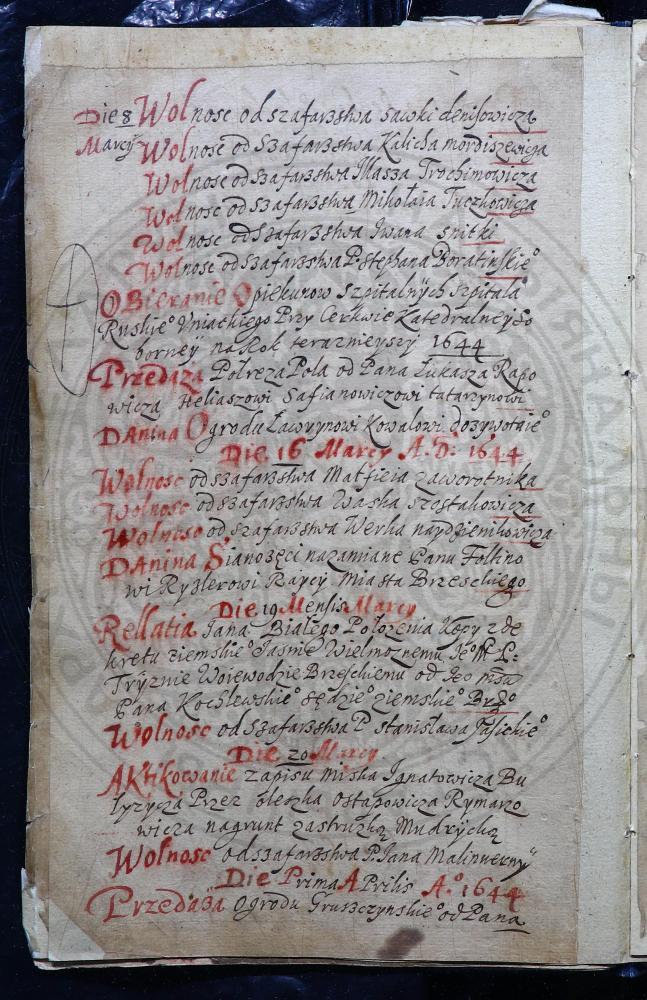 Die 8 Wolnosc odszafarzstwa sawki denisowicza
Marcÿ Wolnosc od szafarzstwa Kalicha mordiszewicza
Wolnosc od szafarzstwa Ilasza Trochimowicza
Wolnosc od szafarzstwa Mikołaia Tuczkowicza
Wolnosc od szafarzstwa Jwana snitki
Wolnosc od szafarzstwa P stephana Boratinskieº
OBieranie Opiekunow szpitalnÿch szpitala
Ruskieº Vniackiego Przy Cerkwie KatedralneySo
borneÿ na Rok teraznieyszÿ 1644
Przedaza Polreza Pola od Pana Łukasza Rapo
wicza Heliaszowi Safianowiczowi tatarzynowi
DAnina Ogrodu Ławrynowi Kowalowi dozywotnieº
Die 16 Marcy A. D: 1644
Wolnosc od szafarzstwa Matfieia zaworotnika
Wolnosc od szafarzstwa Waska szostakowicza
Wolnosc od szafarzstwa Werka naydzienikowicza
DAnina Sianozęci na zamiane Panu Foltino
wi Ryzlerowi Raycÿ Miasta Brzesckiego
Die 19 Mensis Marcy
Rellatia Jana Białego Położenia Kopÿ z de
kretu ziemskieº Jasnie Wielmoznemu Jeº M L:
Trÿznie Woiewodzie Brzesckiemu od Jeo msu
Pana Kochlewskieº sędzieº ziemskieº Brzº
Wolnosc od szafarzstwa P stanisława Jasickieº
Die 20 Marcy
AKtikowanie zapisu miska Jgnatowicza Bu
łyzycza Przez oleszka Ostapowicza Rymarzo
wicza nagrunt zastruzką Mudrÿcką
Wolnosc od szafarzstwa P. Jana
Die Prima APrilis A.º 1644
Przedaza Ogrodu Gruszczynskieº od Pana